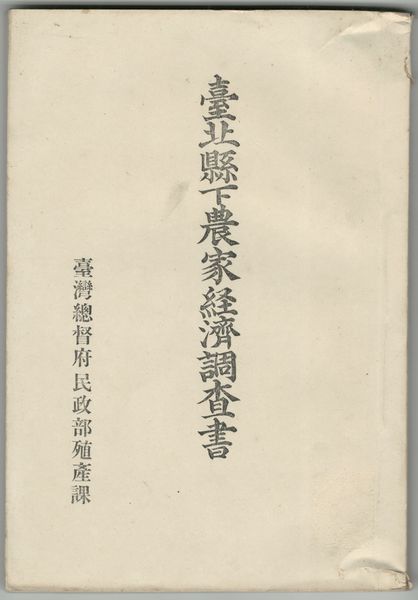 臺北縣下農家経濟調査書
臺灣總督府民政部殖產課